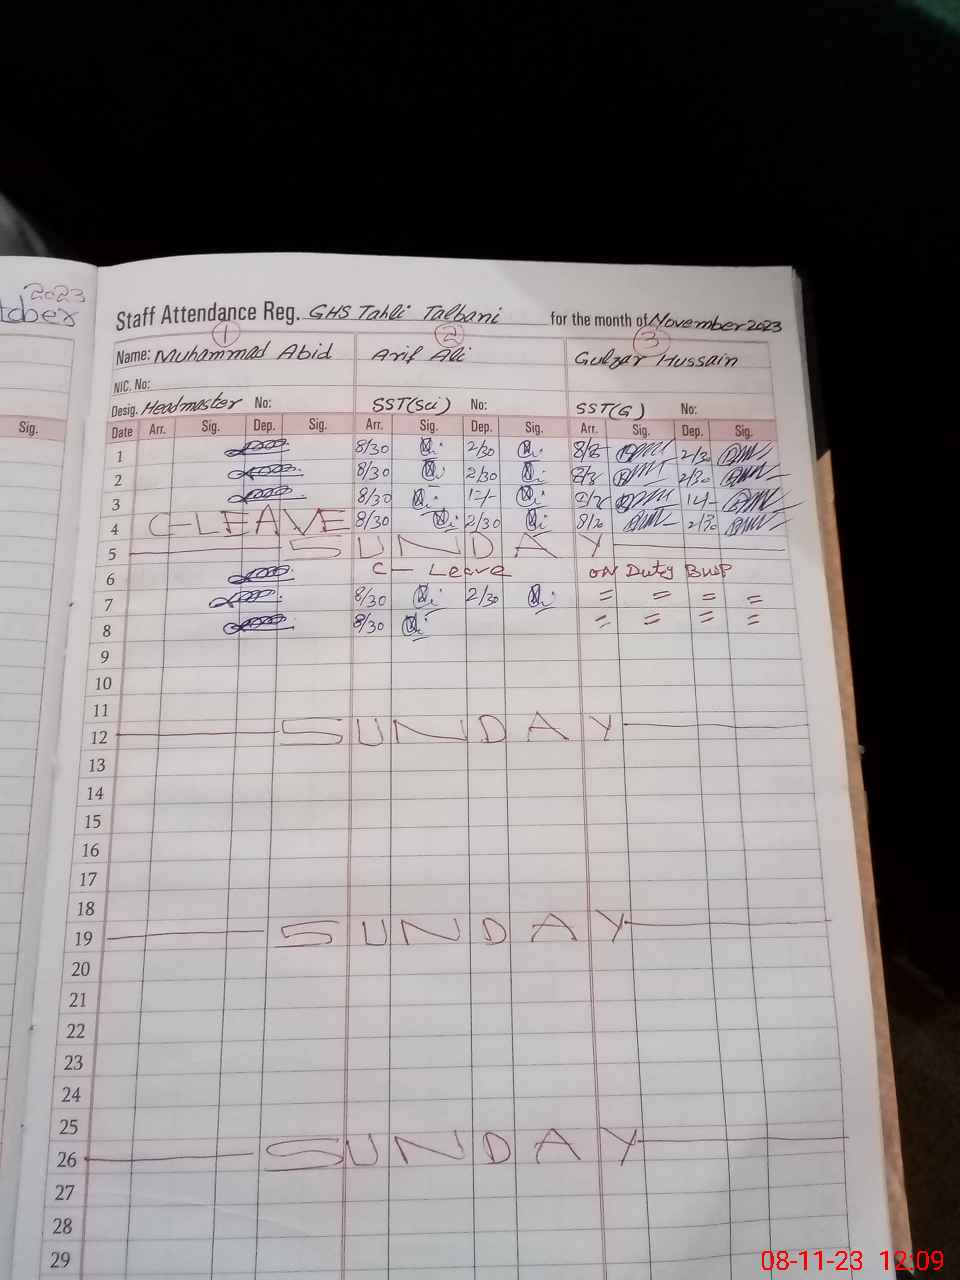 2023
Staff Attendance Reg. GHS Tahli Talbani for the month of November 2023
1 2 3
Name: Muhammad Abid Arif Ali Gulzar Hussain
NIC. No:
Desig. Headmaster No: SST(Sci) No: SST(G) No:
Sig. Date Arr. Sig. Dep. Sig. Arr. Sig. Dep. Sig. Arr. Sig. Dep. Sig.
1 8/30 2/30 2/30
2 8/30 2/30 2/30
3 8/30
4 C-LEAVE 8/30 2/30 2/30
5 SUNDAY
6 C- Leave ON Duty BISP
7 8/30 2/30 = = = =
8 8/30 = = = =
9
10
11
12 SUNDAY
13
14
15
16
17
18
19 SUNDAY
20
21
22
23
24
25
26 SUNDAY
27
28
29
08-11-23 12:09